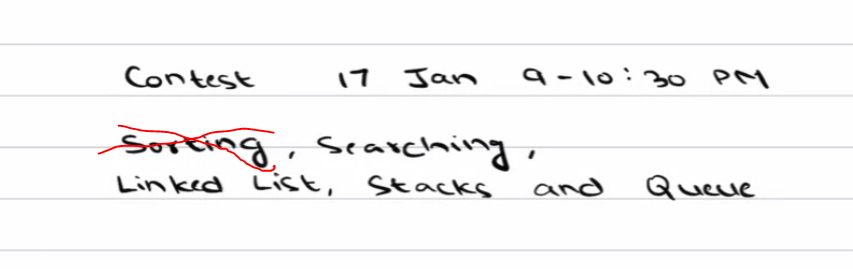 Contest 17 Jan 9-10:30 PM
Sorting, Searching,
Linked List, Stacks and Queue